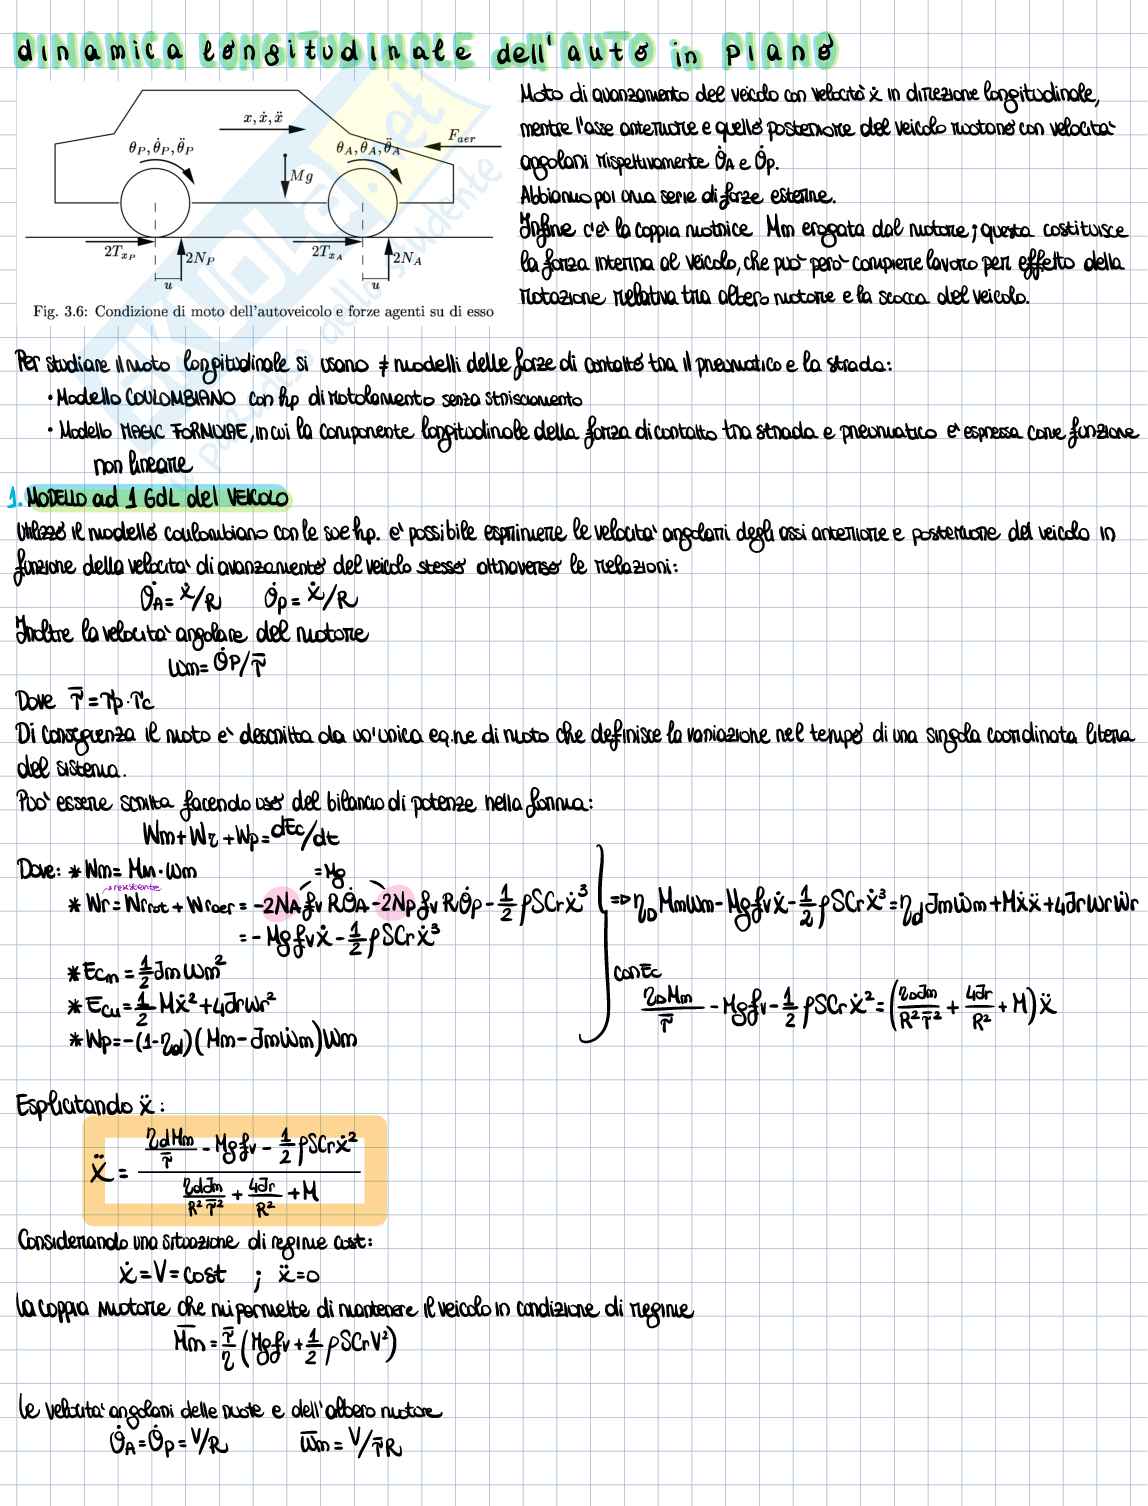 dinamica longitudinale dell'auto in piano
x, ẋ, ẍ
F_aer
θ_P, θ̇_P, θ̈_P
θ_A, θ̇_A, θ̈_A
Mg
2T_xP
2N_P
2T_xA
2N_A
u
u
Fig. 3.6: Condizione di moto dell'autoveicolo e forze agenti su di esso
Moto di avanzamento del veicolo con velocità ẋ in direzione longitudinale,
mentre l'asse anteriore e quello posteriore del veicolo ruotano con velocità
angolari rispettivamente θ̇A e θ̇p.
Abbiamo poi una serie di forze esterne.
Infine c'è la coppia motrice Mm erogata dal motore; questa costituisce
la forza interna al veicolo, che può però compiere lavoro per effetto della
rotazione relativa tra albero motore e la scocca del veicolo.
Per studiare il moto longitudinale si usano ≠ modelli delle forze di contatto tra il pneumatico e la strada:
• Modello COULOMBIANO con hp di rotolamento senza strisciamento
• Modello MAGIC FORMULAE, in cui la componente longitudinale della forza di contatto tra strada e pneumatico è espressa come funzione
non lineare
1. MODELLO ad 1 GdL del VEICOLO
Utilizzo il modello coulombiano con le sue hp. è possibile esprimere le velocità angolari degli assi anteriore e posteriore del veicolo in
funzione della velocità di avanzamento del veicolo stesso attraverso le relazioni:
θ̇A = ẋ/R θ̇p = ẋ/R
Inoltre la velocità angolare del motore
ωm = θ̇P/τ̄
Dove τ̄ = τp·τc
Di conseguenza il moto è descritto da un'unica eq.ne di moto che definisce la variazione nel tempo di una singola coordinata libera
del sistema.
Può essere scritta facendo uso del bilancio di potenze nella forma:
Wm + Wr + Wp = dEc/dt
Dove: * Wm = Mm·ωm
=Mg
→resistente
* Wr = Wrrot + Wraer = -2NA fv Rθ̇A - 2Np fv Rθ̇p - 1/2 ρSCrẋ³
= -Mgfvẋ - 1/2 ρSCrẋ³
* Ecm = 1/2 Jm ωm²
* Ecu = 1/2 Mẋ² + 4Jrωr²
* Wp = -(1-ηd)(Mm - Jmω̇m)ωm
⇒ ηD Mmωm - Mgfvẋ - 1/2 ρSCrẋ³ = ηd Jmω̇m + Mẋẍ + 4Jrωrω̇r
con Ec
ηDMm/τ̄ - Mgfv - 1/2 ρSCrẋ² = (ηDJm/R²τ̄² + 4Jr/R² + M)ẍ
Esplicitando ẍ:
ẍ = (ηdMm/τ̄ - Mgfv - 1/2 ρSCrẋ²) / (ηdJm/R²τ̄² + 4Jr/R² + M)
Considerando una situazione di regime cost:
ẋ = V = cost ; ẍ = 0
La coppia motore che mi permette di mantenere il veicolo in condizione di regime
M̄m = τ̄/η (Mgfv + 1/2 ρSCrV²)
Le velocità angolari delle ruote e dell'albero motore
θ̇A = θ̇p = V/R ω̄m = V/τ̄R